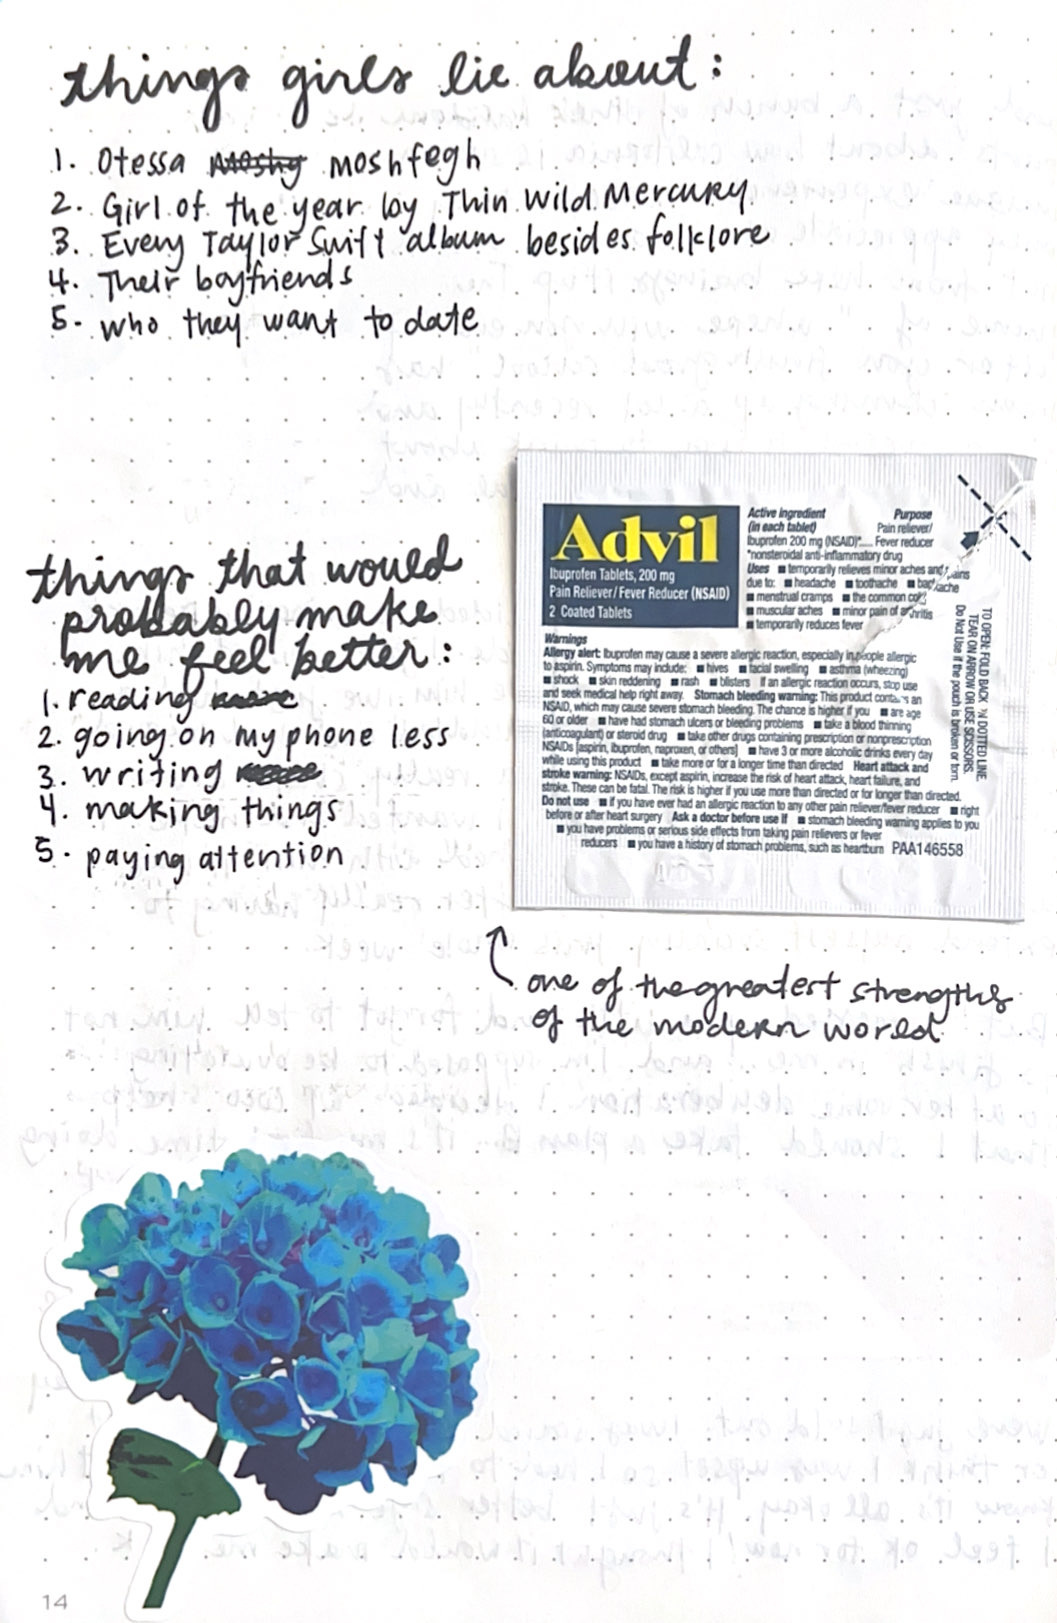 things girls lie about:
1. Otessa Moshfegh
2. Girl of the year by Thin Wild Mercury
3. Every Taylor Swift album besides folklore
4. Their boyfriends
5. who they want to date
Advil
Ibuprofen Tablets, 200 mg
Pain Reliever/Fever Reducer (NSAID)
2 Coated Tablets
Active ingredient Purpose
(in each tablet) Pain reliever/
Ibuprofen 200 mg (NSAID)*..... Fever reducer
*nonsteroidal anti-inflammatory drug
Uses ■ temporarily relieves minor aches and pains
due to: ■ headache ■ toothache ■ backache
■ menstrual cramps ■ the common cold
■ muscular aches ■ minor pain of arthritis
■ temporarily reduces fever
Warnings
Allergy alert: Ibuprofen may cause a severe allergic reaction, especially in people allergic
to aspirin. Symptoms may include: ■ hives ■ facial swelling ■ asthma (wheezing)
■ shock ■ skin reddening ■ rash ■ blisters If an allergic reaction occurs, stop use
and seek medical help right away. Stomach bleeding warning: This product contains an
NSAID, which may cause severe stomach bleeding. The chance is higher if you ■ are age
60 or older ■ have had stomach ulcers or bleeding problems ■ take a blood thinning
(anticoagulant) or steroid drug ■ take other drugs containing prescription or nonprescription
NSAIDs [aspirin, ibuprofen, naproxen, or others] ■ have 3 or more alcoholic drinks every day
while using this product ■ take more or for a longer time than directed Heart attack and
stroke warning: NSAIDs, except aspirin, increase the risk of heart attack, heart failure, and
stroke. These can be fatal. The risk is higher if you use more than directed or for longer than directed.
Do not use ■ if you have ever had an allergic reaction to any other pain reliever/fever reducer ■ right
before or after heart surgery Ask a doctor before use if ■ stomach bleeding warning applies to you
■ you have problems or serious side effects from taking pain relievers or fever
reducers ■ you have a history of stomach problems, such as heartburn PAA146558
TO OPEN: FOLD BACK ON DOTTED LINE.
TEAR ON ARROW OR USE SCISSORS
Do Not Use if the pouch is broken or torn.
things that would
probably make
me feel better:
1. reading
2. going on my phone less
3. writing
4. making things
5. paying attention
one of the greatest strengths
of the modern world
14